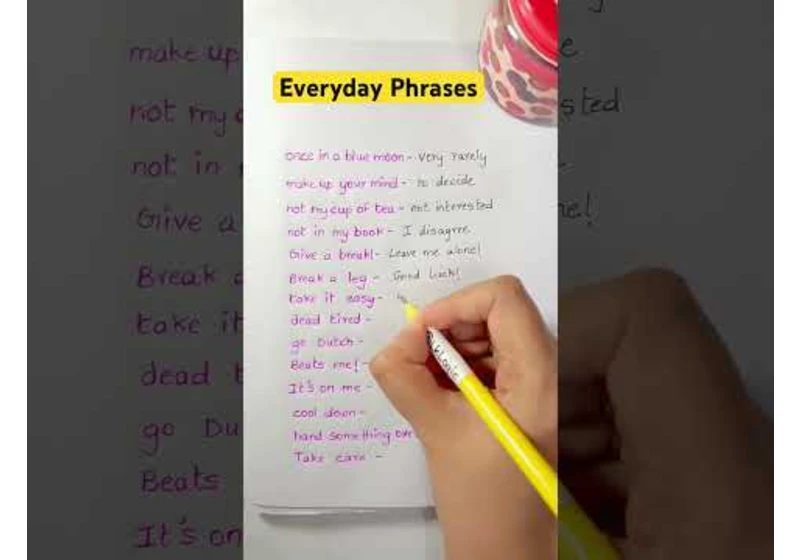 Everyday Phrases
once in a blue moon - very rarely
make up your mind - to decide
not my cup of tea - not interested
not in my book - I disagree
Give a break! - Leave me alone!
Break a leg - Good luck!
take it easy -
dead tired -
go Dutch -
Beats me! -
It's on me -
cool down -
hand something
Take care -